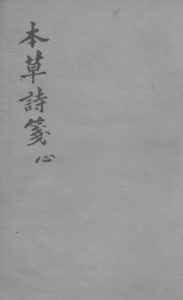 本草詩箋心